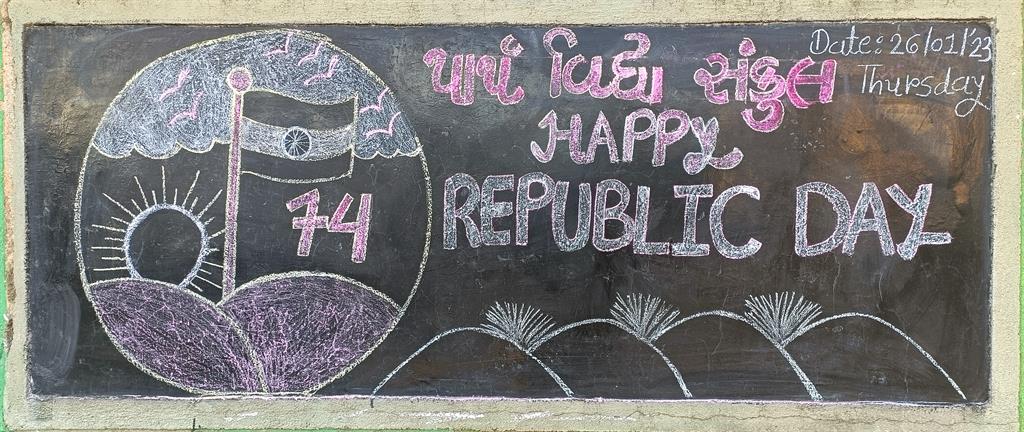 પાર્થ વિદ્યા સંકુલ
Date: 26/01/'23
Thursday
HAPPY
REPUBLIC DAY
74